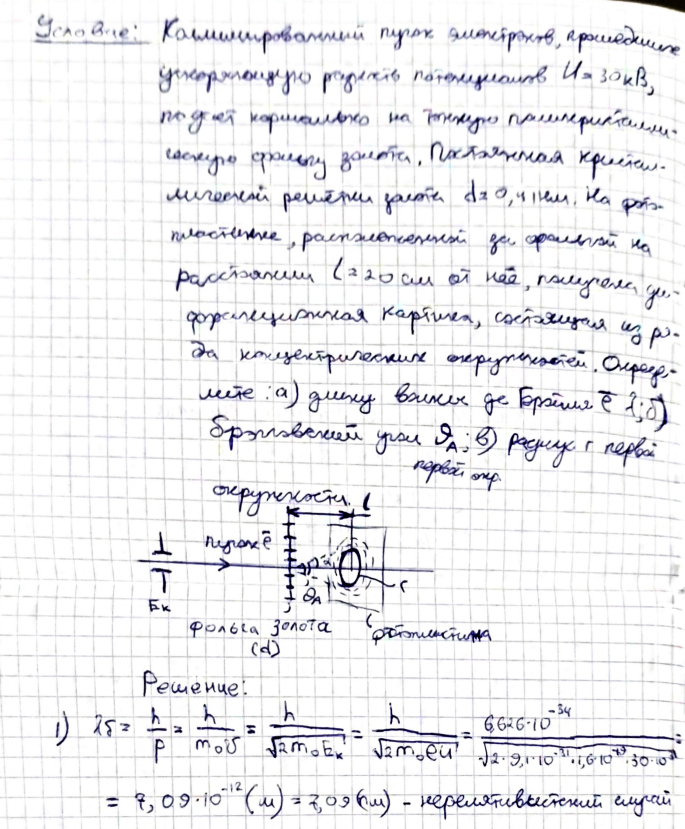 Условие: Коллимированный пучок электронов, прошедших
ускоряющую разность потенциалов U = 30 кВ,
падает нормально на тонкую поликристалли-
ческую фольгу золота. Постоянная кристал-
лической решётки золота d = 0,41 нм. На фото-
пластинке, расположенной за фольгой на
расстоянии l = 20 см от неё, получена ди-
фракционная картина, состоящая из ря-
да концентрических окружностей. Опреде-
лите: а) длину волны де Бройля ē λ; б)
Брэгговский угол θ_A; в) радиус r первой
первой окр.
окружности.
l
пучок ē
r
θ_A
Eк
фольга золота
(d)
фотопластинка
Решение:
1) λδ = h/p = h/(m₀υ) = h/√(2m₀Eк) = h/√(2m₀eU) = 6,626·10⁻³⁴/√(2·9,1·10⁻³¹·1,6·10⁻¹⁹·30·10³) =
= 7,09·10⁻¹² (м) = 7,09 (пм) - нерелятивистский случай